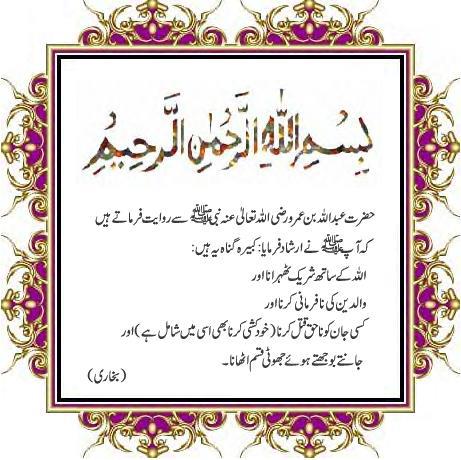 بِسْمِ اللّٰهِ الرَّحْمٰنِ الرَّحِيمِ
حضرت عبداللہ بن عمرو رضی اللہ تعالیٰ عنہ نبی ﷺ سے روایت فرماتے ہیں
کہ آپ ﷺ نے ارشاد فرمایا: کبیرہ گناہ یہ ہیں:
اللہ کے ساتھ شریک ٹھہرانا اور
والدین کی نافرمانی کرنا اور
کسی جان کو ناحق قتل کرنا (خودکشی کرنا بھی اسی میں شامل ہے) اور
جانتے بوجھتے ہوئے جھوٹی قسم اٹھانا۔
(بخاری)